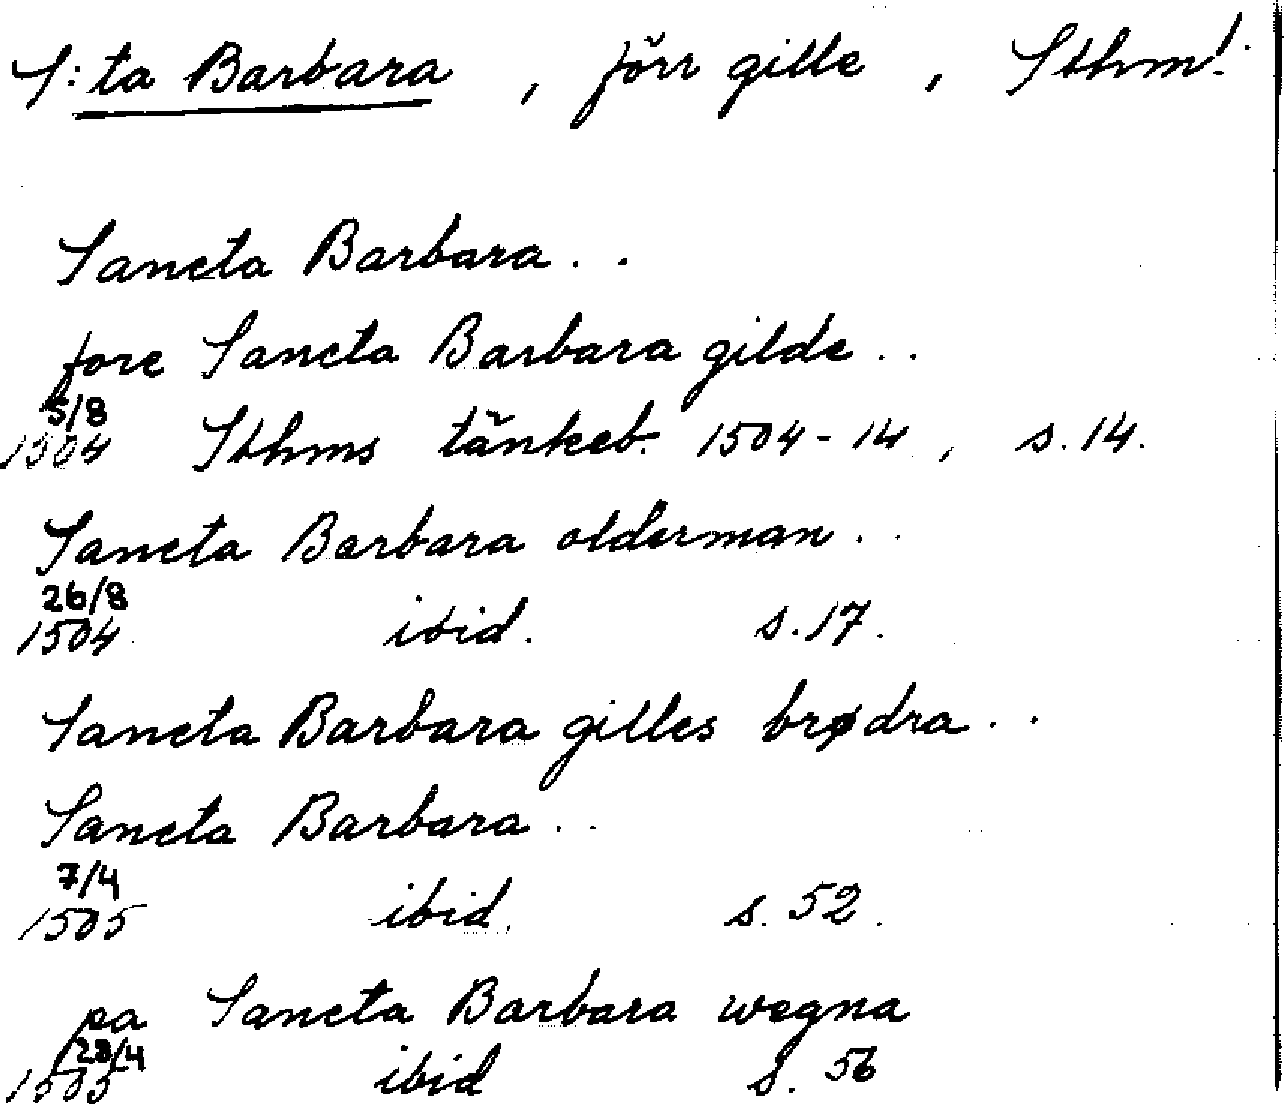 S:ta Barbara , förr gille , Sthm!
Sancta Barbara . .
fore Sancta Barbara gilde . .
5/8
1504 Sthms tänkeb. 1504-14 , s. 14.
Sancta Barbara olderman . .
26/8
1504. ibid. s. 17.
Sancta Barbara gilles brødra . .
Sancta Barbara . .
7/4
1505 ibid. s. 52.
pa Sancta Barbara wegna
28/4
1505 ibid s. 56